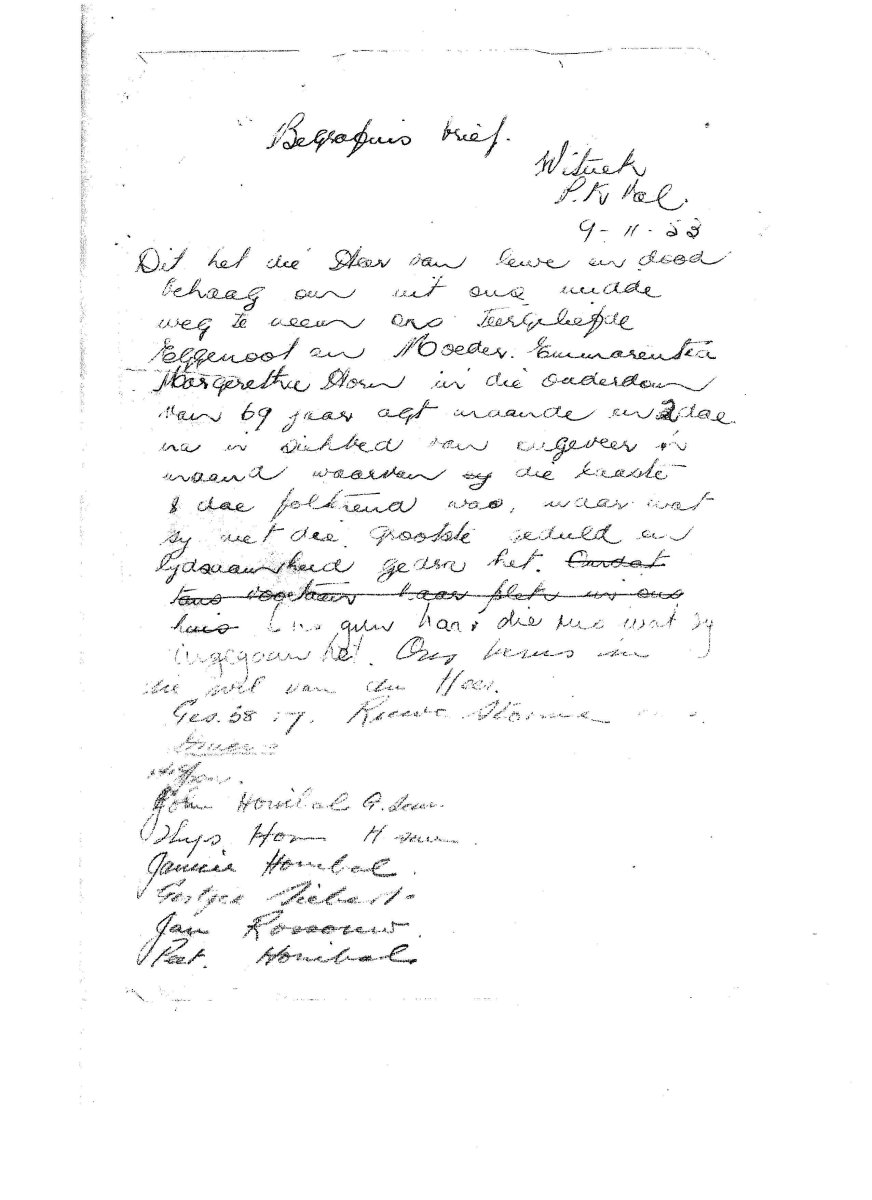 Begrafnis brief.
Witnek
P.K. Vol.
9-11-53
Dit het die Heer van lewe en dood
behaag om uit ons midde
weg te neem ons teergeliefde
Eggenoot en Moeder. Emmarentia
Margerethie Horn in die ouderdom
van 69 jaar agt maande en 2 dae
na 'n siekbed van ongeveer 'n
maand waarvan sy die laaste
8 dae folterend was, maar wat
sy met die grootste geduld en
lydsaamheid gedra het. Omdat
haar plek in ons
huis Ons gun haar die rus wat sy
ingegaan het. Ons berus in
die wil van die Heer.
Ges. 58 : 7.
John Honibal
Thys Horn H
Jannie Honibal.
Siebert.
Jan Rossouw.
Piet. Honibal.